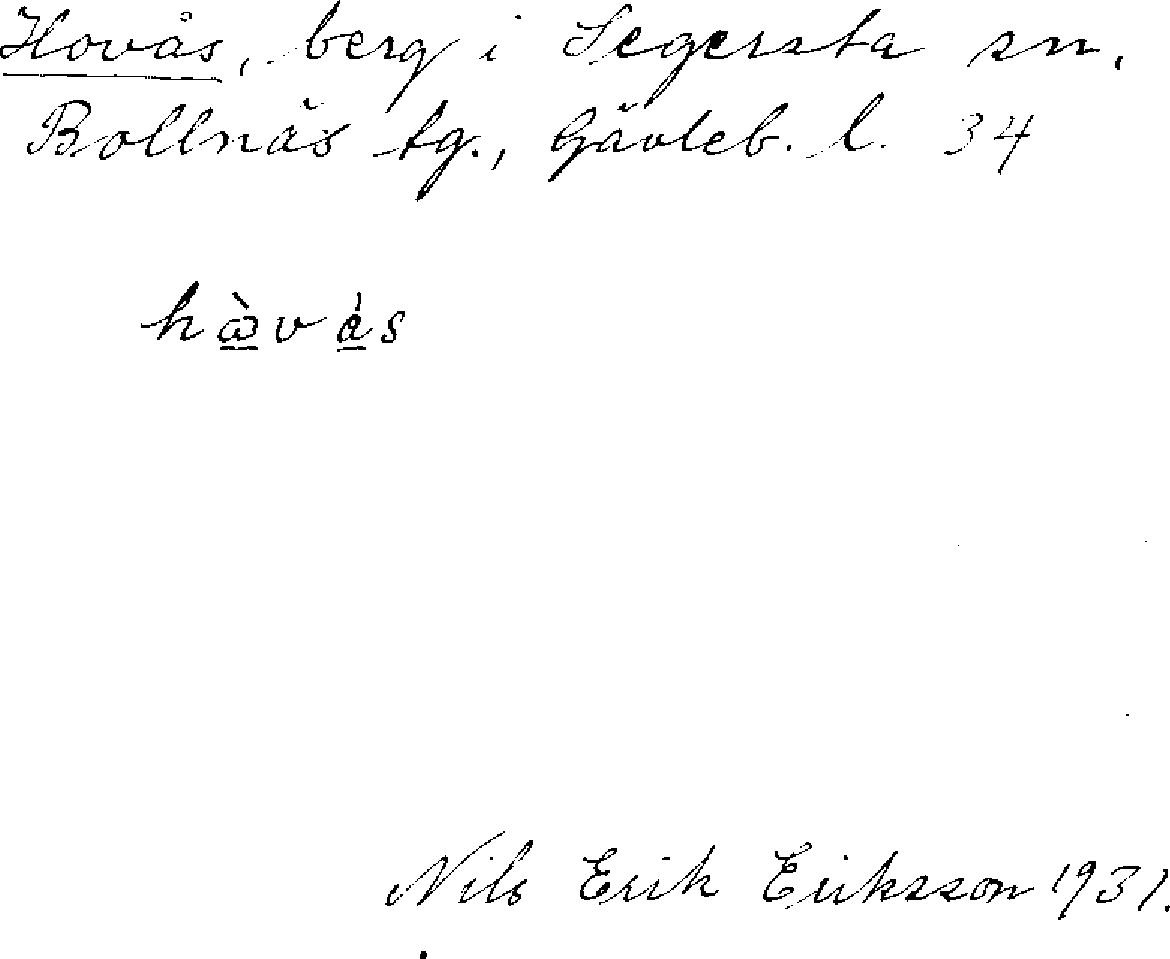 Hovås, berg i Segersta sn.
Bollnäs tg., Gävleb. l. 34
hὼ̲vås
Nils Erik Eriksson 1931.